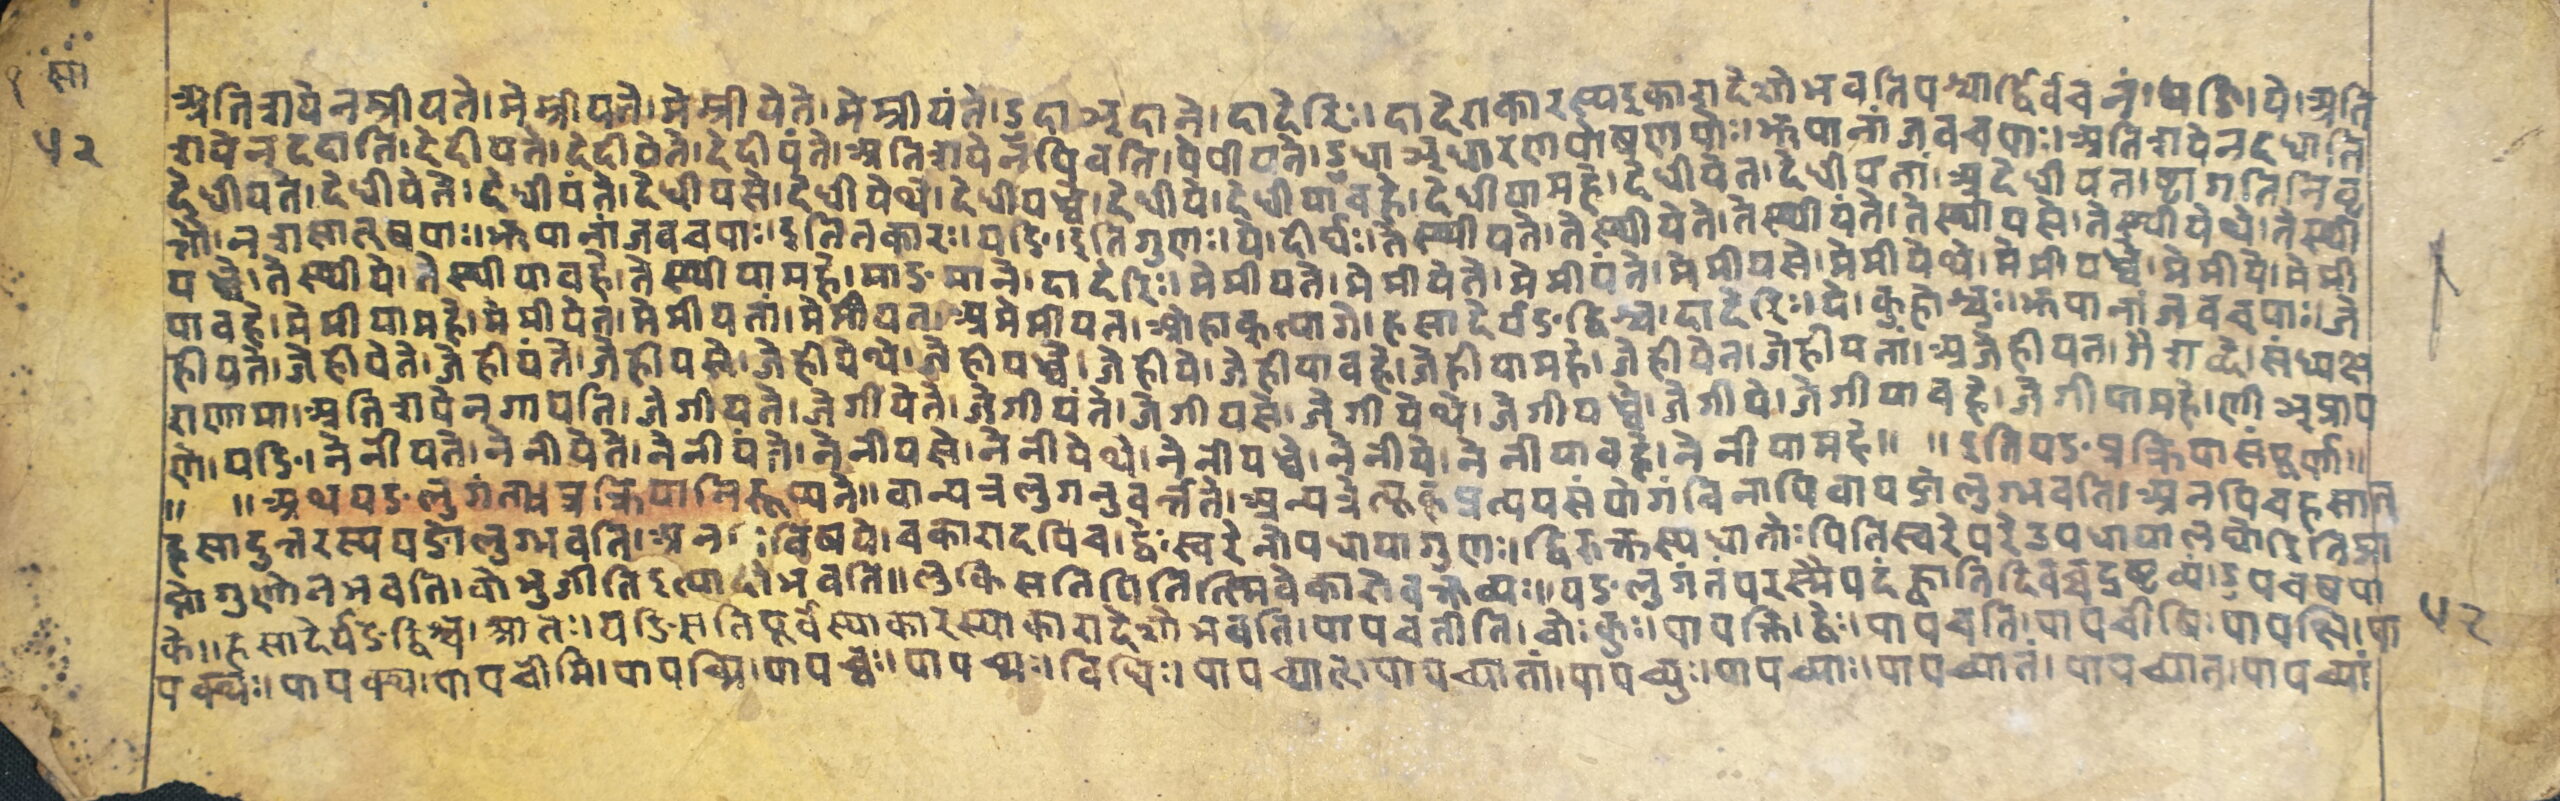 सा
५२
अतिशयेन स्त्रीयते। मेम्रीयते। मेम्रीयेते। मेम्रीयंते। डुदाञ् दाने। दादेरिः। दादेराकारस्य इकारादेशो भवति पश्चाद्द्विर्वचनं। यङि। ये। अति
शयेन ददाति। देदीयते। देदीयेते। देदीयंते। अतिशयेन पिबति। पेपीयते। डुधाञ् धारणपोषणयोः। झपानां जवचपाः। अतिशयेन दधाति
देधीयते। देधीयेते। देधीयंते। देधीयसे। देधीयेथे। देधीयध्वे। देधीये। देधीयावहे। देधीयामहे। देधीयेत। देधीयतां। अदेधीयत। ष्ठा गतिनिवृ
त्तौ। न शसात् खपाः। झपानां जवचपाः। इति तकारः। यङि। इति गुणः। ये। दीर्घः। तेस्थीयते। तेस्थीयेते। तेस्थीयंते। तेस्थीयसे। तेस्थीयेथे। तेस्थी
यध्वे। तेस्थीये। तेस्थीयावहे। तेस्थीयामहे। माङ् माने। दादेरिः। मेमीयते। मेमीयेते। मेमीयंते। मेमीयसे। मेमीयेथे। मेमीयध्वे। मेमीये। मेमी
यावहे। मेमीयामहे। मेमीयेत। मेमीयतां। मेमीयत। अमेमीयत। ओहाक् त्यागे। हसादेर्यङ् द्विश्च। दादेरिः। ये। कुहोश्चुः। झपानां जवचपाः। जे
हीयते। जेहीयेते। जेहीयंते। जेहीयसे। जेहीयेथे। जेहीयध्वे। जेहीये। जेहीयावहे। जेहीयामहे। जेहीयेत। जेहीयतां। अजेहीयत। गै शब्दे। संध्यक्ष
राणामा। अतिशयेन गायति। जेगीयते। जेगीयेते। जेगीयंते। जेगीयसे। जेगीयेथे। जेगीयध्वे। जेगीये। जेगीयावहे। जेगीयामहे। णीञ् प्राप
णे। यङि। नेनीयते। नेनीयेते। नेनीयंते। नेनीयसे। नेनीयेथे। नेनीयध्वे। नेनीये। नेनीयावहे। नेनीयामहे॥ ॥ इति यङ् प्रक्रिया संपूर्णा॥
॥ ॥ अथ यङ्लुगंता प्रक्रिया निरूप्यते॥ वान्यत्र लुगनुवर्त्तते। अन्यत्र प्रत्ययसंयोगं विनापि वा यङो लुग्भवति। अनपि च हसात्
हसादुत्तरस्य यङो लुग्भवति। अन विषये। चकारादपि च। द्वेः स्वरे नोपधाया गुणः। द्विरुक्तस्य धातोः पिति स्वरे परे उपधाया लघोरिति प्रा
प्तो गुणो न भवति। बोभुजीति इत्यादौ भवति॥ लुकि सति पिति स्मि वेकारो वक्तव्यः॥ यङ्लुगंतं परस्मैपदं ह्वादिवच्च द्रष्टव्यं। डुपचष् पा
के॥ हसादेर्यङ् द्विश्च। आतः। यङि सति पूर्वस्याकारस्याकारादेशो भवति। पापचतीति। चोः कुः। पापक्ति। द्वेः। पापचति। पापचीषि। पापक्षि। पा
पक्थः। पापक्थ। पापचीमि। पापच्मि। पापच्वः। पापच्मः। विधिः। पापच्यात्। पापच्यातां। पापच्युः। पापच्याः। पापच्यातं। पापच्यात। पापच्यां
५२